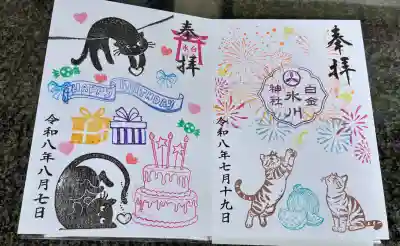 奉拝
白金
氷川
神社
令和八年七月十九日
奉拝
HAPPY BIRTHDAY
令和八年八月七日